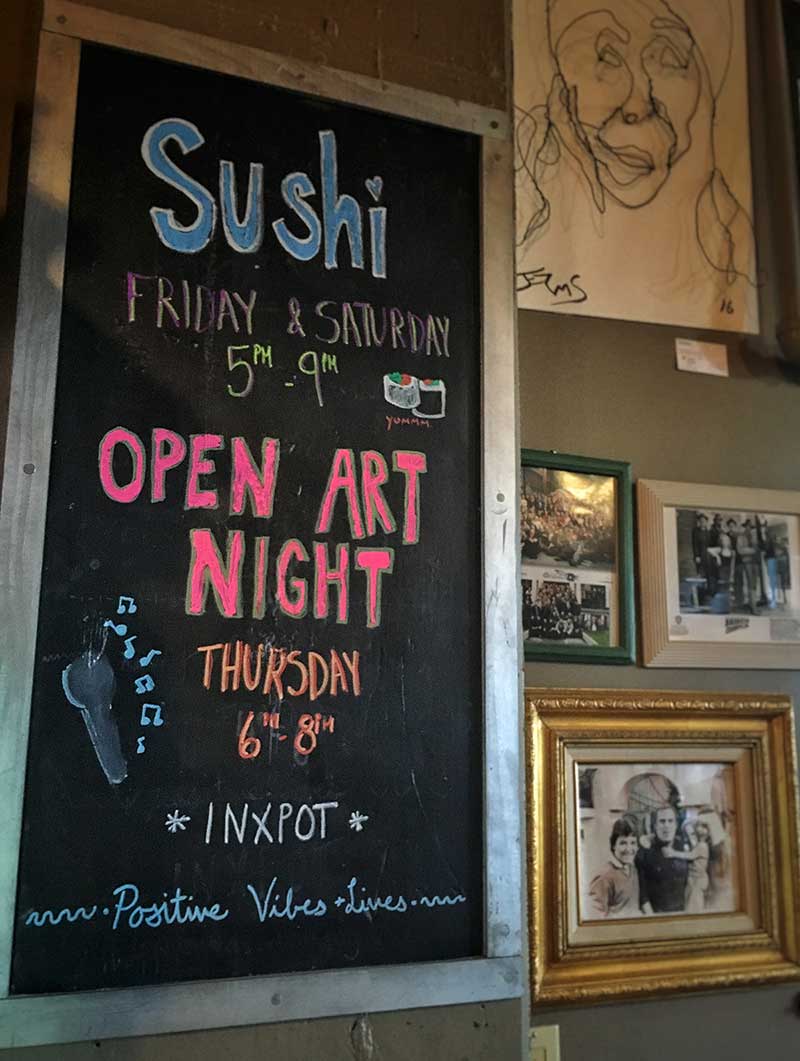 Sushi
FRIDAY & SATURDAY
5PM - 9PM
YUMMM
OPEN ART
NIGHT
THURSDAY
6PM - 8PM
* INXPOT *
Positive Vibes + Lives
16